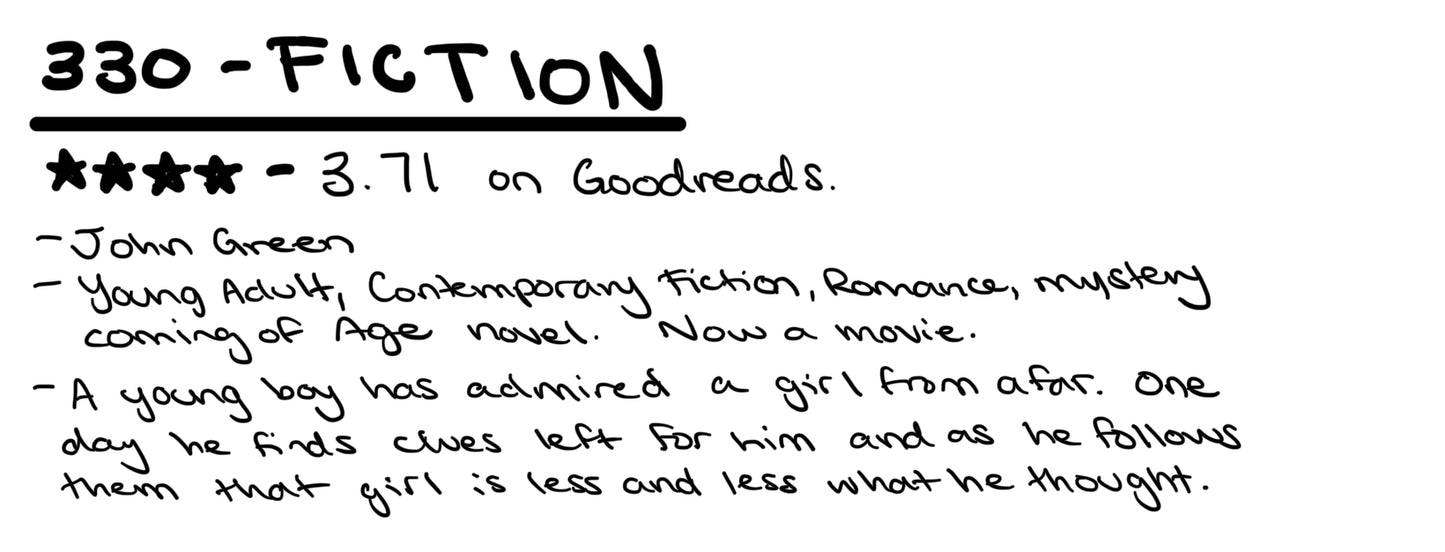 330 - FICTION
★★★★ - 3.71 on Goodreads.
- John Green
- Young Adult, Contemporary Fiction, Romance, mystery
coming of Age novel. Now a movie.
- A young boy has admired a girl from afar. One
day he finds clues left for him and as he follows
them that girl is less and less what he thought.